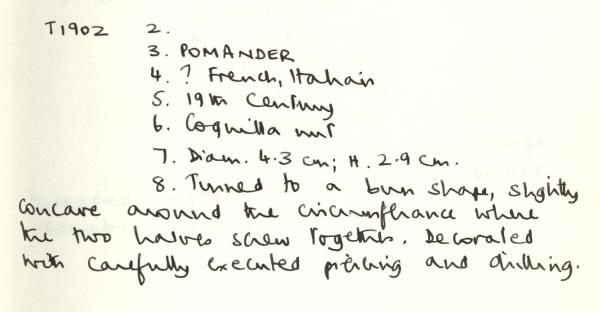 T1902 2.
3. POMANDER
4. ? French, Italian
5. 19th Century
6. Coquilla nut
7. Diam. 4.3 cm; H. 2.9 cm.
8. Turned to a bun shape, slightly
concave around the circumference where
the two halves screw together. Decorated
with carefully executed piercing and drilling.